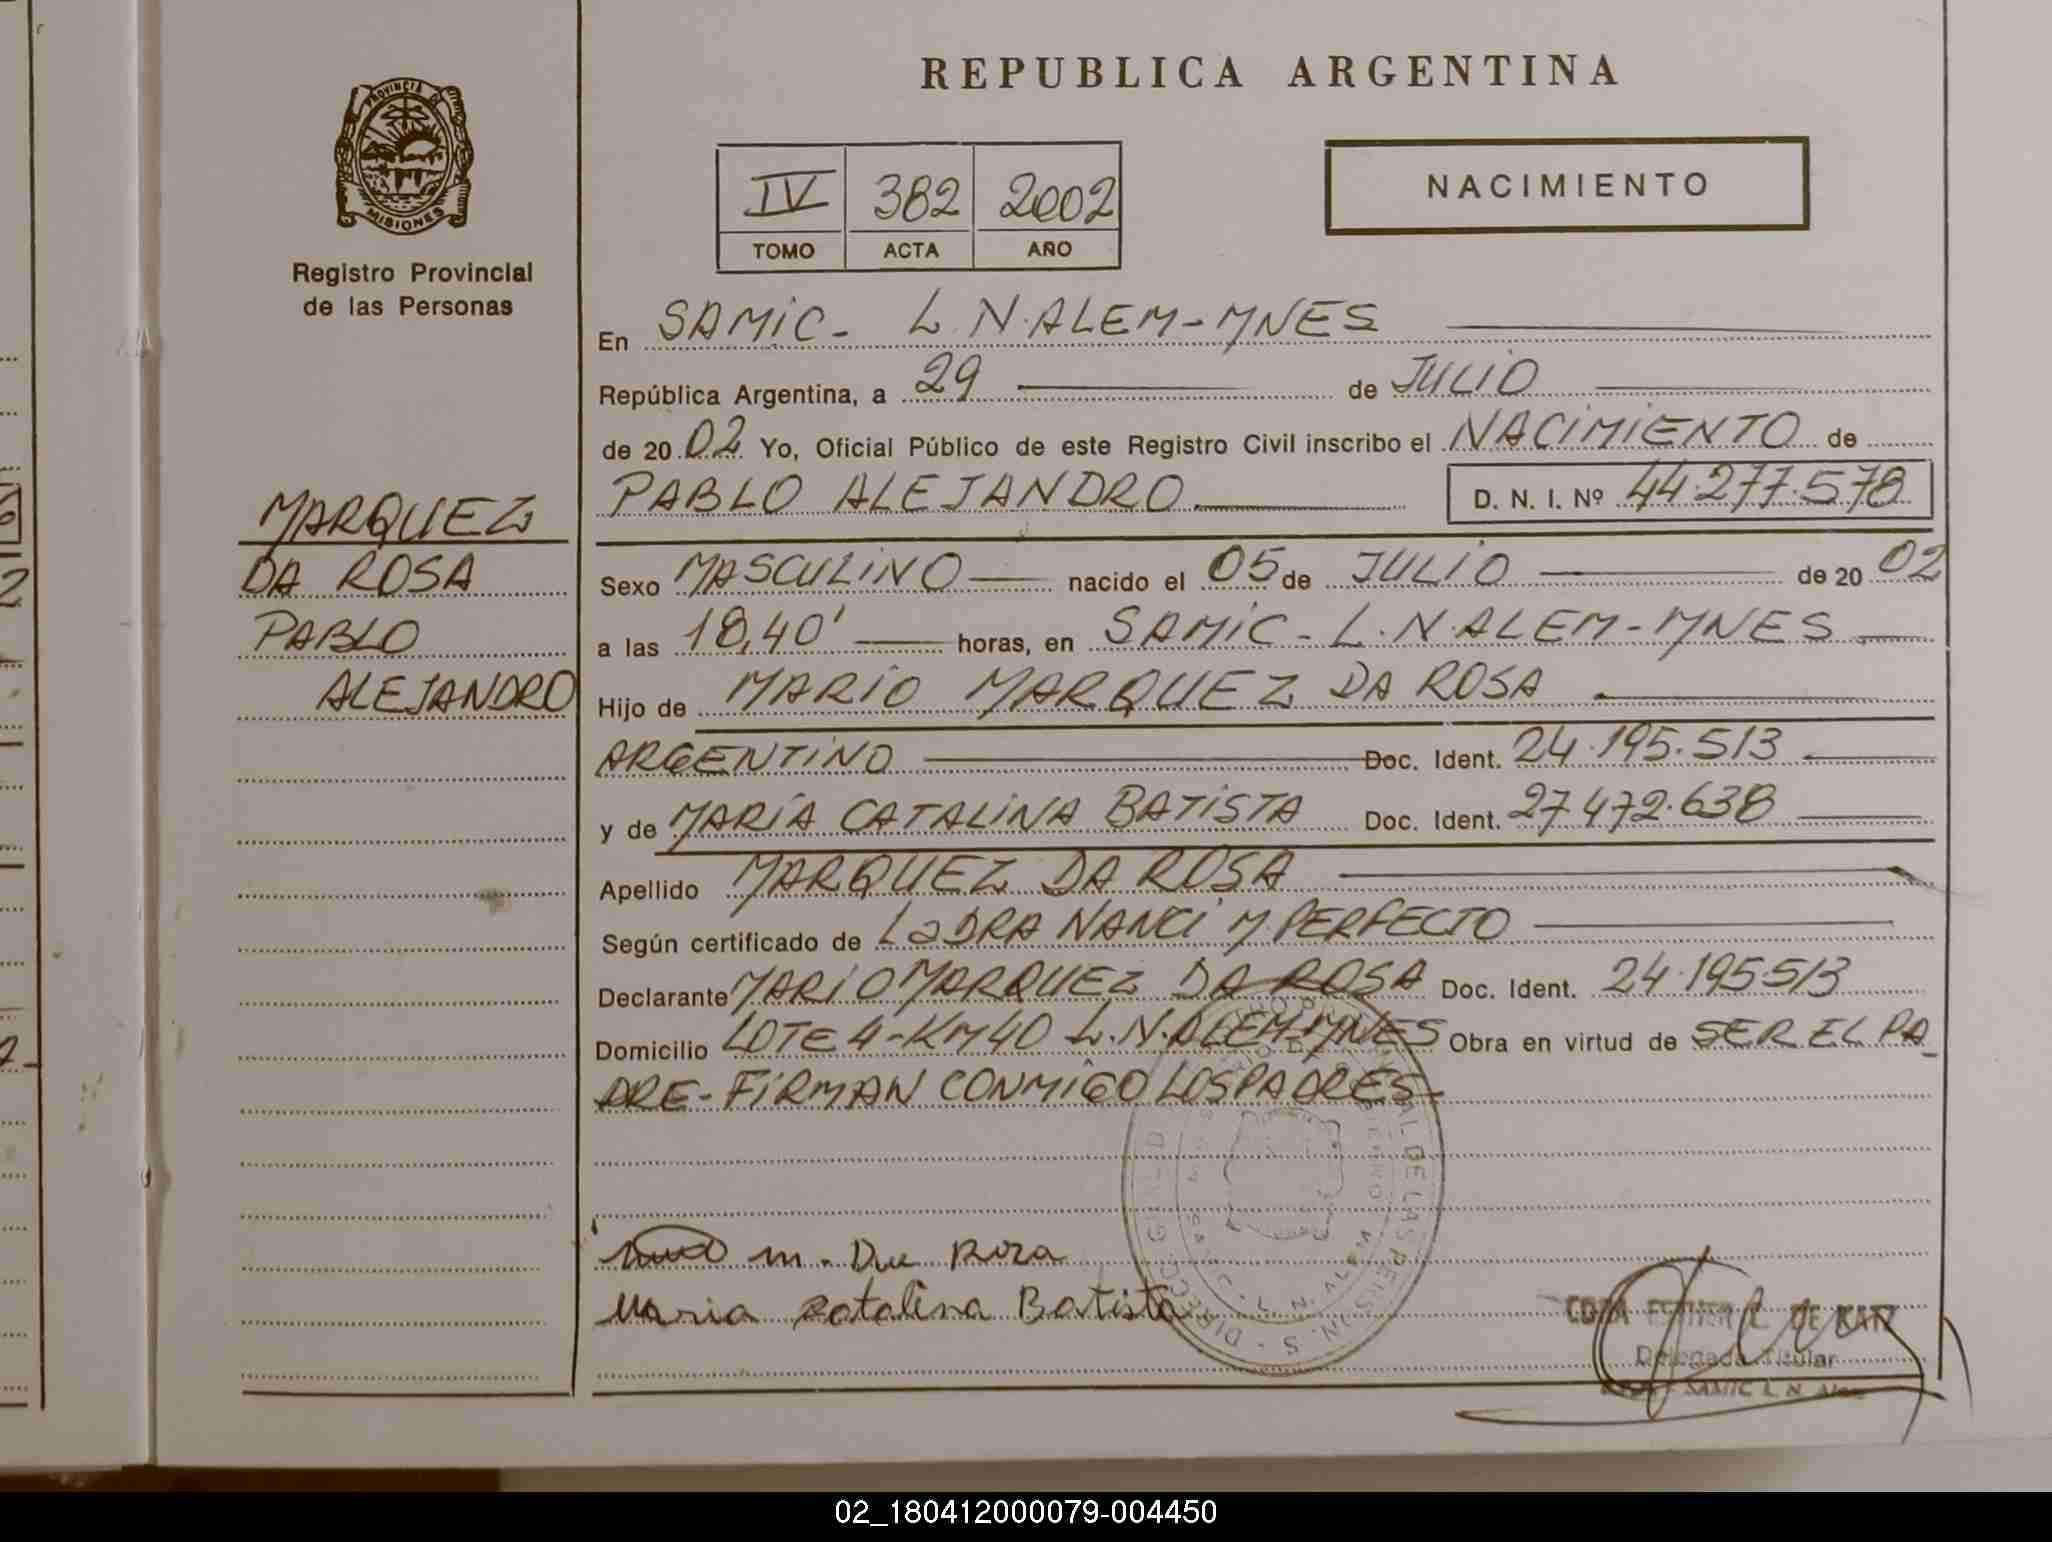 REPUBLICA ARGENTINA
PROVINCIA DE
MISIONES
Registro Provincial
de las Personas
IV 382 2002
TOMO ACTA AÑO
NACIMIENTO
MARQUEZ
DA ROSA
PABLO
ALEJANDRO
En SAMIC - L.N.ALEM - MNES
República Argentina, a 29 de JULIO
de 20 02 Yo, Oficial Público de este Registro Civil inscribo el NACIMIENTO de
PABLO ALEJANDRO D. N. I. Nº 44.277.578
Sexo MASCULINO nacido el 05 de JULIO de 20 02
a las 18,40' horas, en SAMIC - L.N.ALEM - MNES
Hijo de MARIO MARQUEZ DA ROSA
ARGENTINO Doc. Ident. 24.195.513
y de MARÍA CATALINA BATISTA Doc. Ident. 27.472.638
Apellido MARQUEZ DA ROSA
Según certificado de NANCI M PERFECTO
Declarante MARIO MARQUEZ DA ROSA Doc. Ident. 24.195513
Domicilio LOTE 4 - KM 40 L.N.ALEM-MNES Obra en virtud de SER EL PA_
DRE - FIRMAN CONMIGO LOS PADRES-
m. Da Rosa
Maria Catalina Batista
DE LAS PERS
DE KATZ
Delegada Titular
SAMIC L. N. Alem
02_180412000079-004450